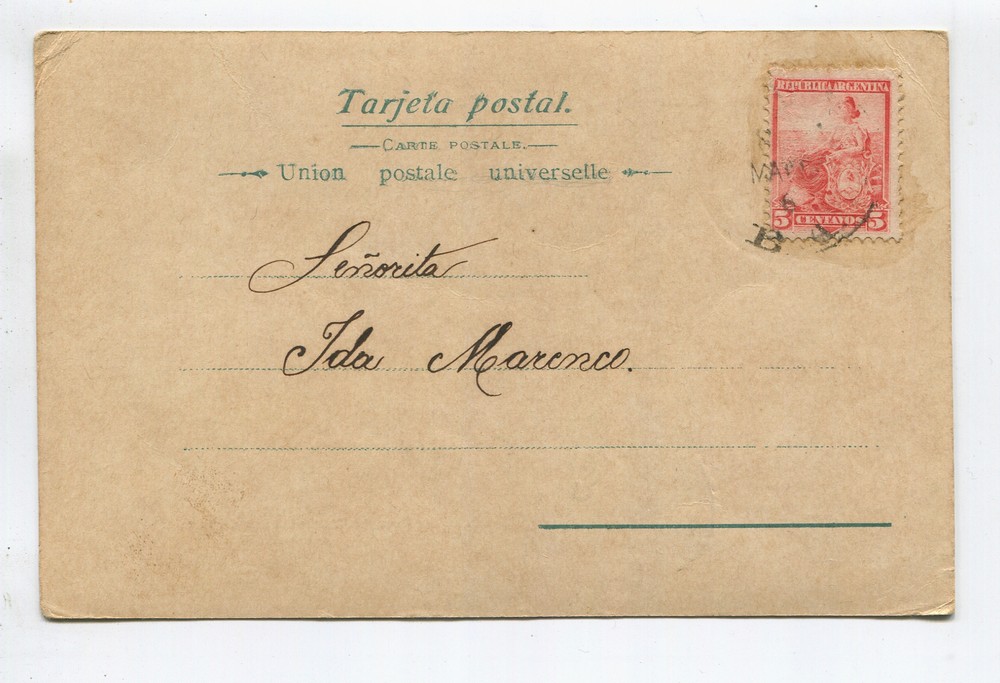 Tarjeta postal.
CARTE POSTALE.
Union postale universelle
REPUBLICA ARGENTINA
5 CENTAVOS 5
B A
Señorita
Ida Marenco.